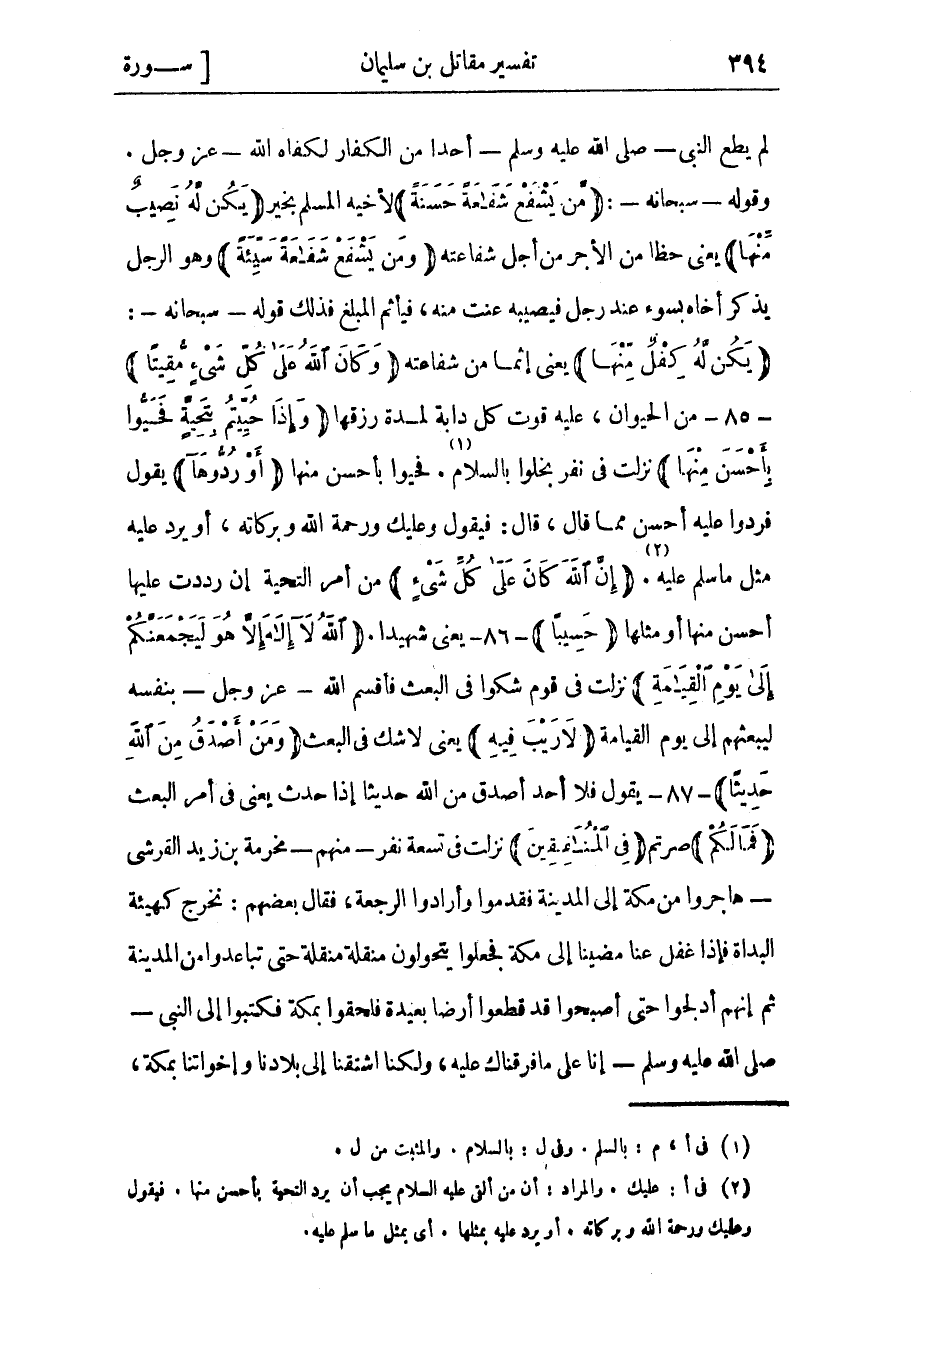 ٣٩٤ تفسير مقاتل بن سليمان [ ســورة
لم يطع النبى — صلى الله عليه وسلم — أحدا من الكفار لكفاه الله — عز وجل .
وقوله — سبحانه — : ﴿ مَّن يَشْفَعْ شَفَـٰعَةً حَسَنَةً ﴾ لأخيه المسلم بخير ﴿ يَكُن لَّهُ نَصِيبٌ
مِّنْهَا ﴾ يعنى حظا من الأجر من أجل شفاعته ﴿ وَمَن يَشْفَعْ شَفَـٰعَةً سَيِّئَةً ﴾ وهو الرجل
يذكر أخاه بسوء عند رجل فيصيبه عنت منه ، فيأثم المبلغ فذلك قوله — سبحانه — :
﴿ يَكُن لَّهُ كِفْلٌ مِّنْهَـا ﴾ يعنى إثمـا من شفاعته ﴿ وَكَانَ ٱللَّهُ عَلَىٰ كُلِّ شَىْءٍ مُّقِيتًا ﴾
— ٨٥ — من الحيوان ، عليه قوت كل دابة لمـدة رزقها ﴿ وَإِذَا حُيِّيتُم بِتَحِيَّةٍ فَحَيُّوا
بِأَحْسَنَ مِنْهَا ﴾ نزلت فى نفر بخلوا بالسلام (١) . فحيوا بأحسن منها ﴿ أَوْ رُدُّوهَآ ﴾ يقول
فردوا عليه أحسن ممـا قال ، قال : فيقول وعليك ورحمة الله وبركاته ، أو يرد عليه
مثل ما سلم عليه (٢) . ﴿ إِنَّ ٱللَّهَ كَانَ عَلَىٰ كُلِّ شَىْءٍ ﴾ من أمر التحية إن رددت عليها
أحسن منها أو مثلها ﴿ حَسِيبًا ﴾ — ٨٦ — يعنى شهيدا . ﴿ ٱللَّهُ لَآ إِلَـٰهَ إِلَّا هُوَ لَيَجْمَعَنَّكُمْ
إِلَىٰ يَوْمِ ٱلْقِيَـٰمَةِ ﴾ نزلت فى قوم شكوا فى البعث فأقسم الله — عز وجل — بنفسه
ليبعثهم إلى يوم القيامة ﴿ لَا رَيْبَ فِيهِ ﴾ يعنى لا شك فى البعث ﴿ وَمَنْ أَصْدَقُ مِنَ ٱللَّهِ
حَدِيثًا ﴾ — ٨٧ — يقول فلا أحد أصدق من الله حديثا إذا حدث يعنى فى أمر البعث
﴿ فَمَا لَكُمْ ﴾ صرتم ﴿ فِى ٱلْمُنَـٰفِقِينَ ﴾ نزلت فى تسعة نفر — منهم — مخرمة بن زيد القرشى
— هاجروا من مكة إلى المدينة فقدموا وأرادوا الرجعة ، فقال بعضهم : نخرج كهيئة
البداة فإذا غفل عنا مضينا إلى مكة فجعلوا يتحولون منقلة منقلة حتى تباعدوا من المدينة
ثم إنهم أدلجوا حتى أصبحوا قد قطعوا أرضا بعيدة فلحقوا بمكة فكتبوا إلى النبى —
صلى الله عليه وسلم — إنا على ما فرقناك عليه ، ولكنا اشتقنا إلى بلادنا وإخواتنا بمكة ،
(١) فى أ ، م : بالسلم . وفى ل : بالسلام . والمثبت من ل .
(٢) فى أ : عليك . والمراد : أن من ألقى عليه السلام يجب أن يرد التحية بأحسن منها . فيقول
وعليك ورحمة الله وبركاته . أو يرد عليه بمثلها . أى بمثل ما سلم عليه .